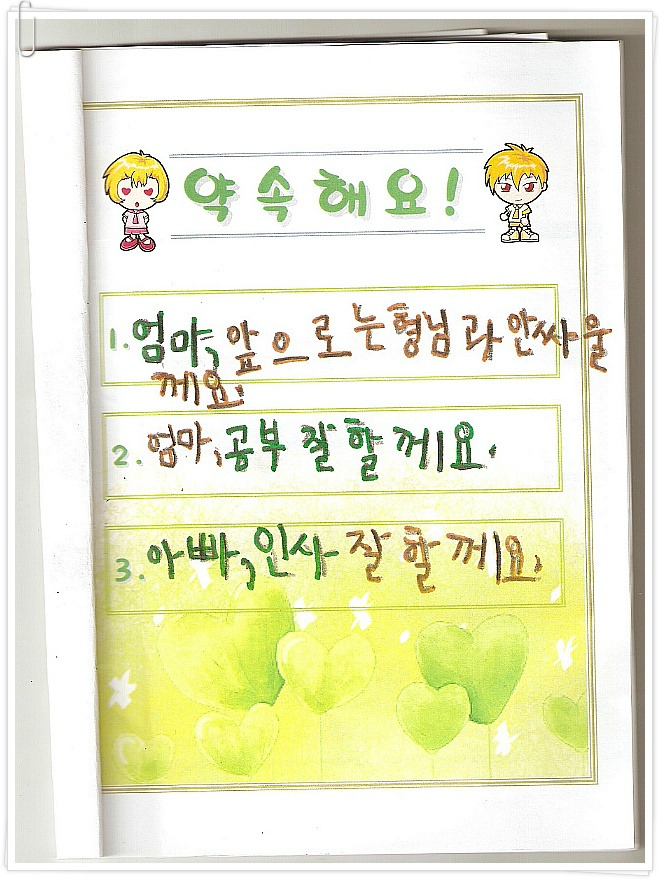 약속해요!
1. 엄마, 앞으로는 형님과 안싸울
께요.
2. 엄마, 공부 잘 할 께요.
3. 아빠, 인사 잘 할 께요.